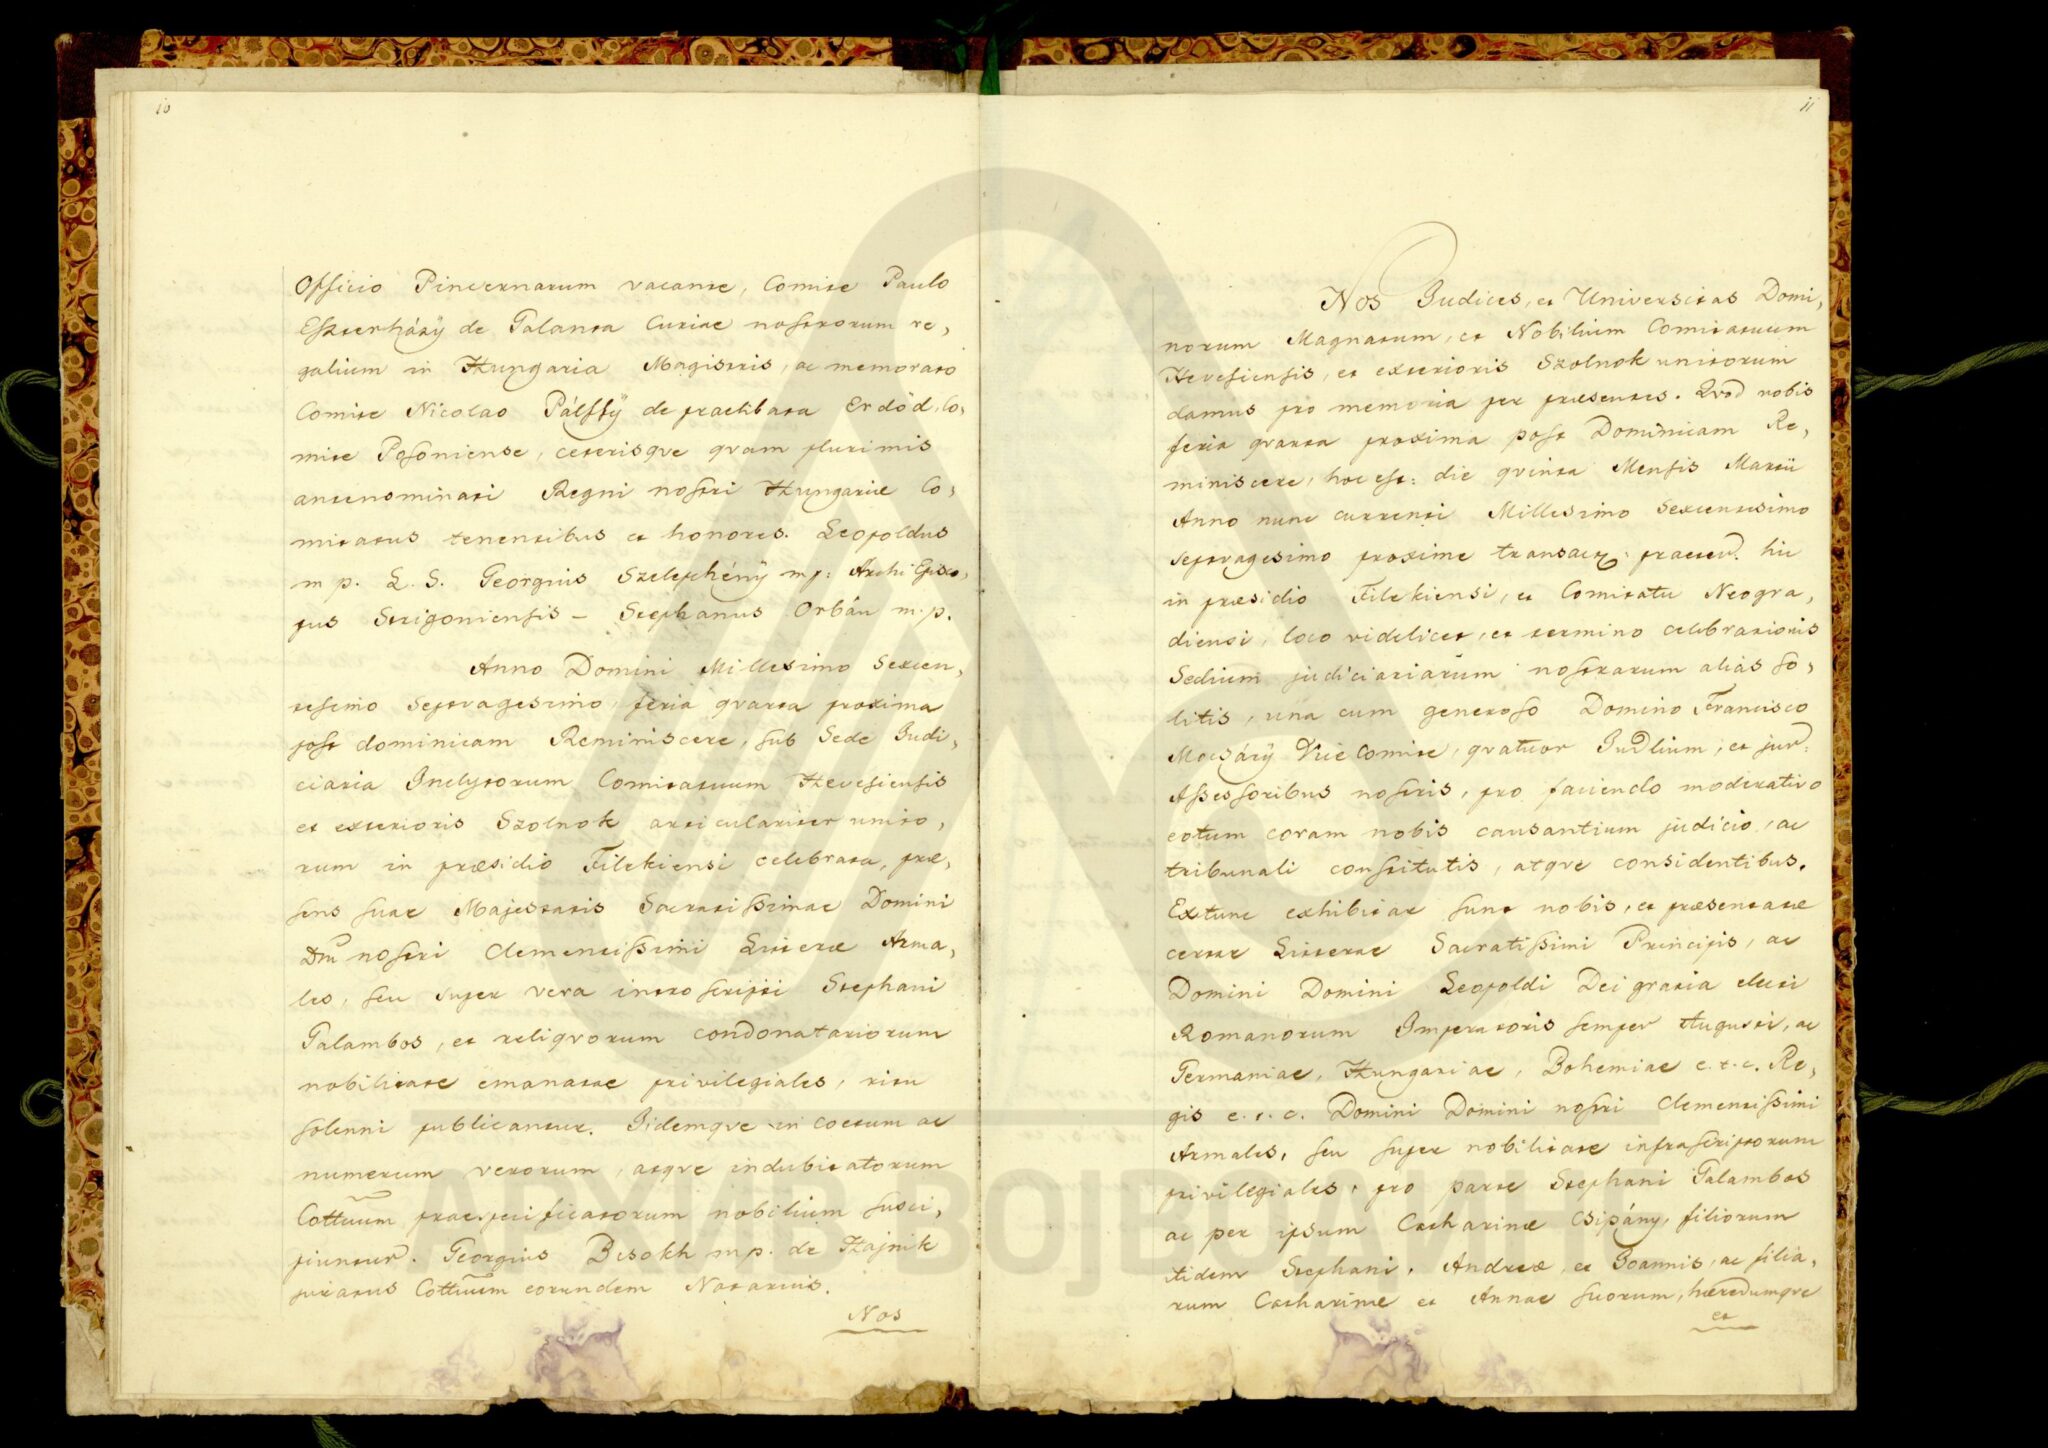 10
Officio Pincernarum vacante, Comite Paulo
Eszterházÿ de Galanta Curiae nostrorum re,
galium in Hungaria Magistris, ac memorato
Comite Nicolao Pálffÿ de praelibata Erdöd, Co,
mite Posoniense, ceterisqve qvam plurimis
antenominati Regni nostri Hungariae Co,
mitatus tenentibus et honores. Leopoldus
m p. L. S. Georgius Szelephénÿ mp: Archi Episco,
pus Strigoniensis – Stephanus Orbán m.p.
Anno Domini Millesimo Sexcen,
tesimo Septvagesimo, feria qvarta proxima
post dominicam Reminiscere, sub Sede Judi,
ciaria Inclytorum Comitatuum Hevesiensis
et exterioris Szolnok articulariter unito,
rum in præsidio Filekiensi celebrata, præ,
sens suae Majestatis Sacratissimae Domini
Dni nostri Clementissimi Litteræ Arma,
les, seu super vera introscripti Stephani
Galambos, et reliqvorum condonatariorum
nobilitate emanatae privilegiales, ritu
solenni publicantur. Iidemqve in coetum ac
numerum verorum, atqve indubitatorum
Cottuum praespecificatorum nobilium susci,
piuntur. Georgius Besokh mp. de Hajnik
juratus Cottuum eorundem Notarius.
Nos
11
Nos Judices, et Universitas Domi,
norum Magnatum, et Nobilium Comitatuum
Hevesiensis, et exterioris Szolnok unitorum
damus pro memoria per præsentes. Qvod nobis
feria qvarta proxima post Dominicam Re,
miniscere, hoc est: die qvinta Mensis Martii
Anno nunc currenti Millesimo Sexcentesimo
septvagesimo proxime transacto, hic
in præsidio Filekiensi, et Comitatu Neogra,
diensi, loco videlicet, et termino celebrationis
Sedium judiciariarum nostrarum alias so,
litis, una cum generoso Domino Francisco
Mocsárÿ Vice Comite, qvatuor Judlium, et jur:
Assessoribus nostris, pro faciendo moderativo
eotum coram nobis causantium judicio, ac
tribunali constitutis, atqve considentibus.
Extunc exhibitae sunt nobis, et præsentatæ
certae Litterae Sacratissimi Principis, ac
Domini Domini Leopoldi Dei gratia electi
Romanorum Imperatoris semper Augusti, ac
Germaniae, Hungariae, Bohemiae e.t.c. Re,
gis e.t.c. Domini Domini nostri Clementissimi
Armales, seu super nobilitate infrascriptorum
privilegiales, pro parte Stephani Galambos
ac per ipsum Catharinæ Csipány, filiorum
itidem Stephani, Andreæ, et Joannis, ac filia,
rum Catharinæ et Annae suorum, hæredumqve
et
АРХИВ ВОЈВОДИНЕ